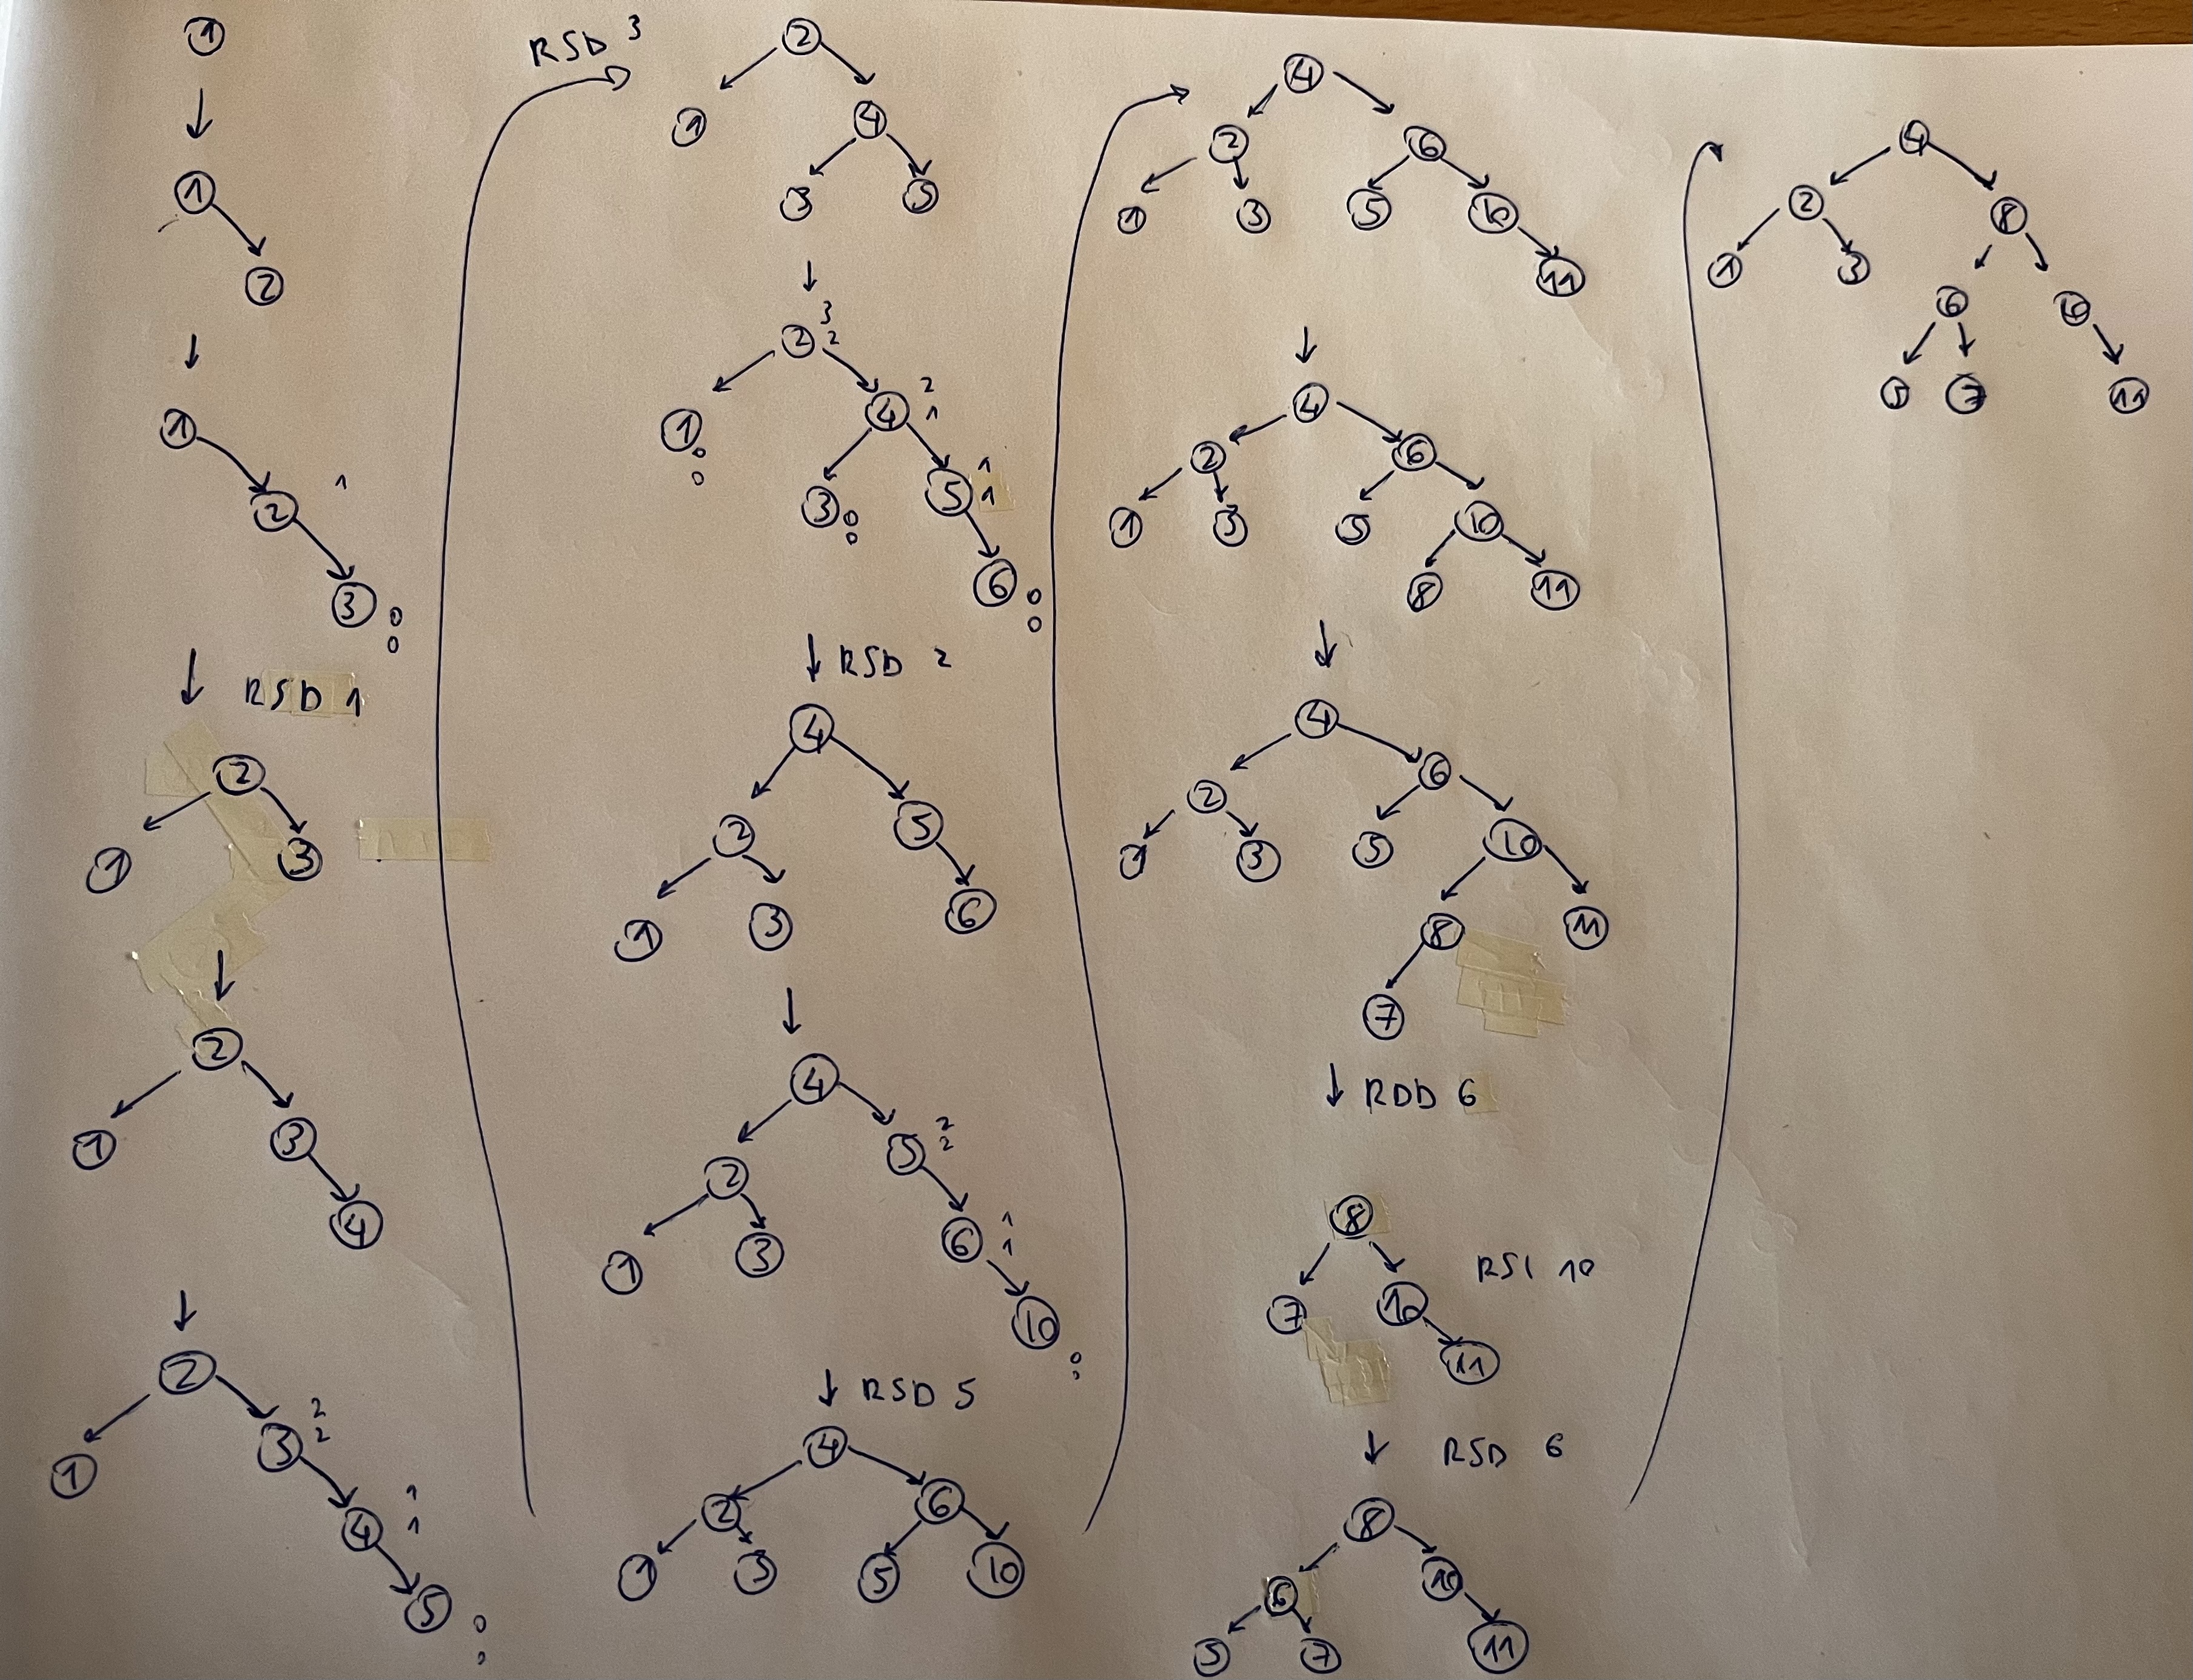 1
1
2
1
2 1
3 0
0
RSD 1
2
1 3
2
1 3
4
2
1 3 2
2
4 1
1
5 0
0
RSD 3
2
1 4
3 5
3
2 2
1 4 2
1
0
0
3 5 1
1
0
0
6 0
0
RSD 2
4
2 5
1 3 6
4
2 5 2
2
1 3 6 1
1
10
0
0
RSD 5
4
2 6
1 3 5 10
4
2 6
1 3 5 10
11
4
2 6
1 3 5 10
8 11
4
2 6
1 3 5 10
8 11
7
RDD 6
8
7 10 RSI 10
11
RSD 6
8
6 10
5 7 11
4
2 8
1 3
6 10
5 7 11